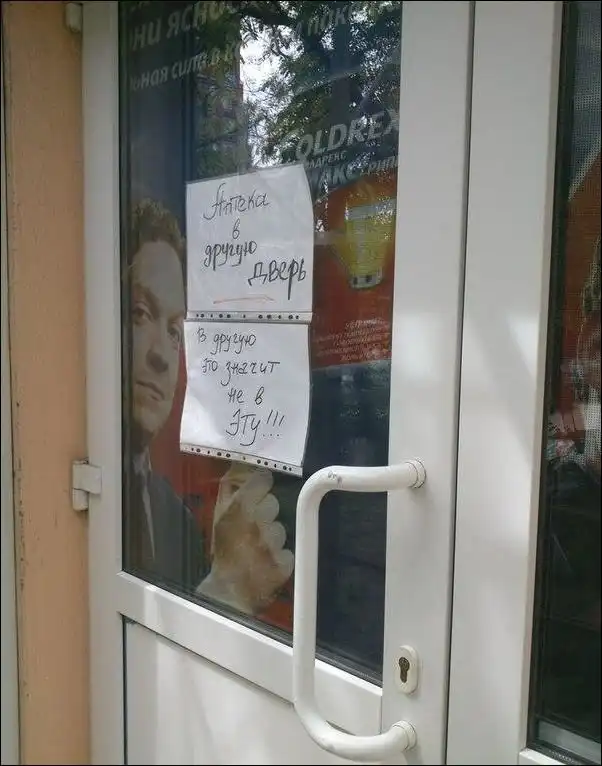 НИ ЯСНОС
ЬНАЯ СИЛА В К
OLDREX
Аптека
в
другую
дверь
В другую
это значит
не в
ЭТУ!!!